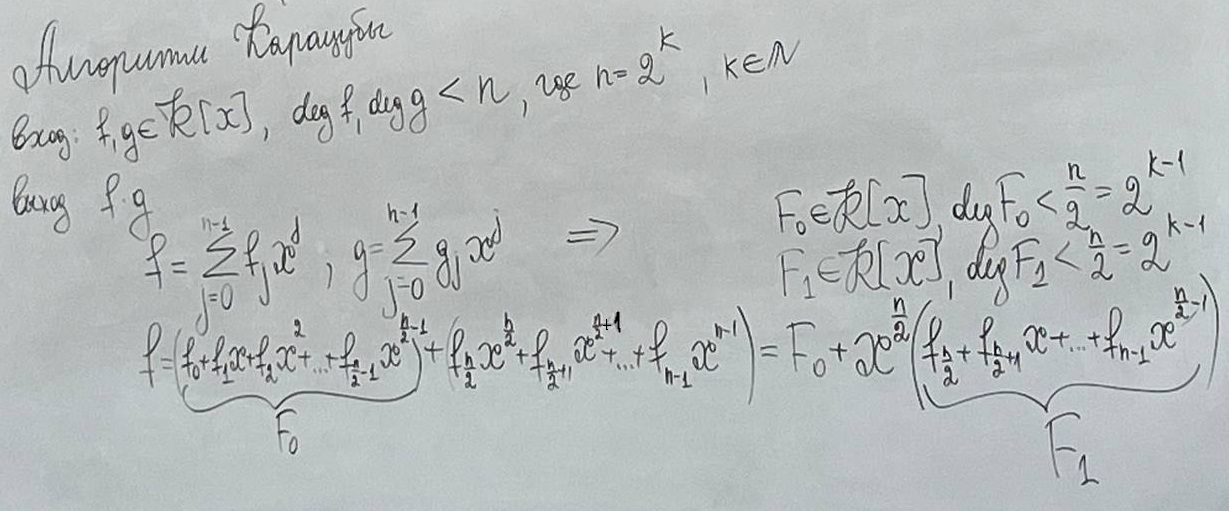 Алгоритм Карацубы
вход: f, g ∈ k[x], deg f, deg g < n, где n = 2^k, k ∈ N
выход f·g
f = ∑_{j=0}^{n-1} f_j x^j ; g = ∑_{j=0}^{n-1} g_j x^j ⇒
F_0 ∈ k[x], deg F_0 < n/2 = 2^{k-1}
F_1 ∈ k[x], deg F_1 < n/2 = 2^{k-1}
f = (f_0 + f_1 x + f_2 x^2 + ... + f_{n/2-1} x^{n/2-1}) + (f_{n/2} x^{n/2} + f_{n/2+1} x^{n/2+1} + ... + f_{n-1} x^{n-1}) = F_0 + x^{n/2} (f_{n/2} + f_{n/2+1} x + ... + f_{n-1} x^{n/2-1})
F_0
F_1